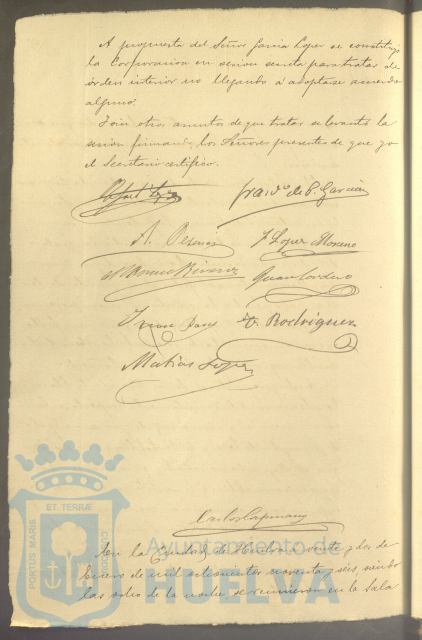 A propuesta del Señor Garcia Lopez se constituyó
la Corporacion en sesion secreta para tratar de
órden interior no llegando á adoptarse acuerdo
alguno.
Y sin otros asuntos de que tratar se levantó la
sesion firmando los Señores presentes de que yo
el Secretario certifico.
Franco. de P. Garcia
J Lopez Moreno
Juan Cordero
Rodriguez
Matias Lopez
Carlos
En la Ciudad de Huelva á veinte y dos de
Enero de mil ochocientos noventa y seis, siendo
las ocho de la noche se reunieron en la Sala
PORTUS MARIS
ET TERRAE
CUSTODIO
Ayuntamiento de
HUELVA